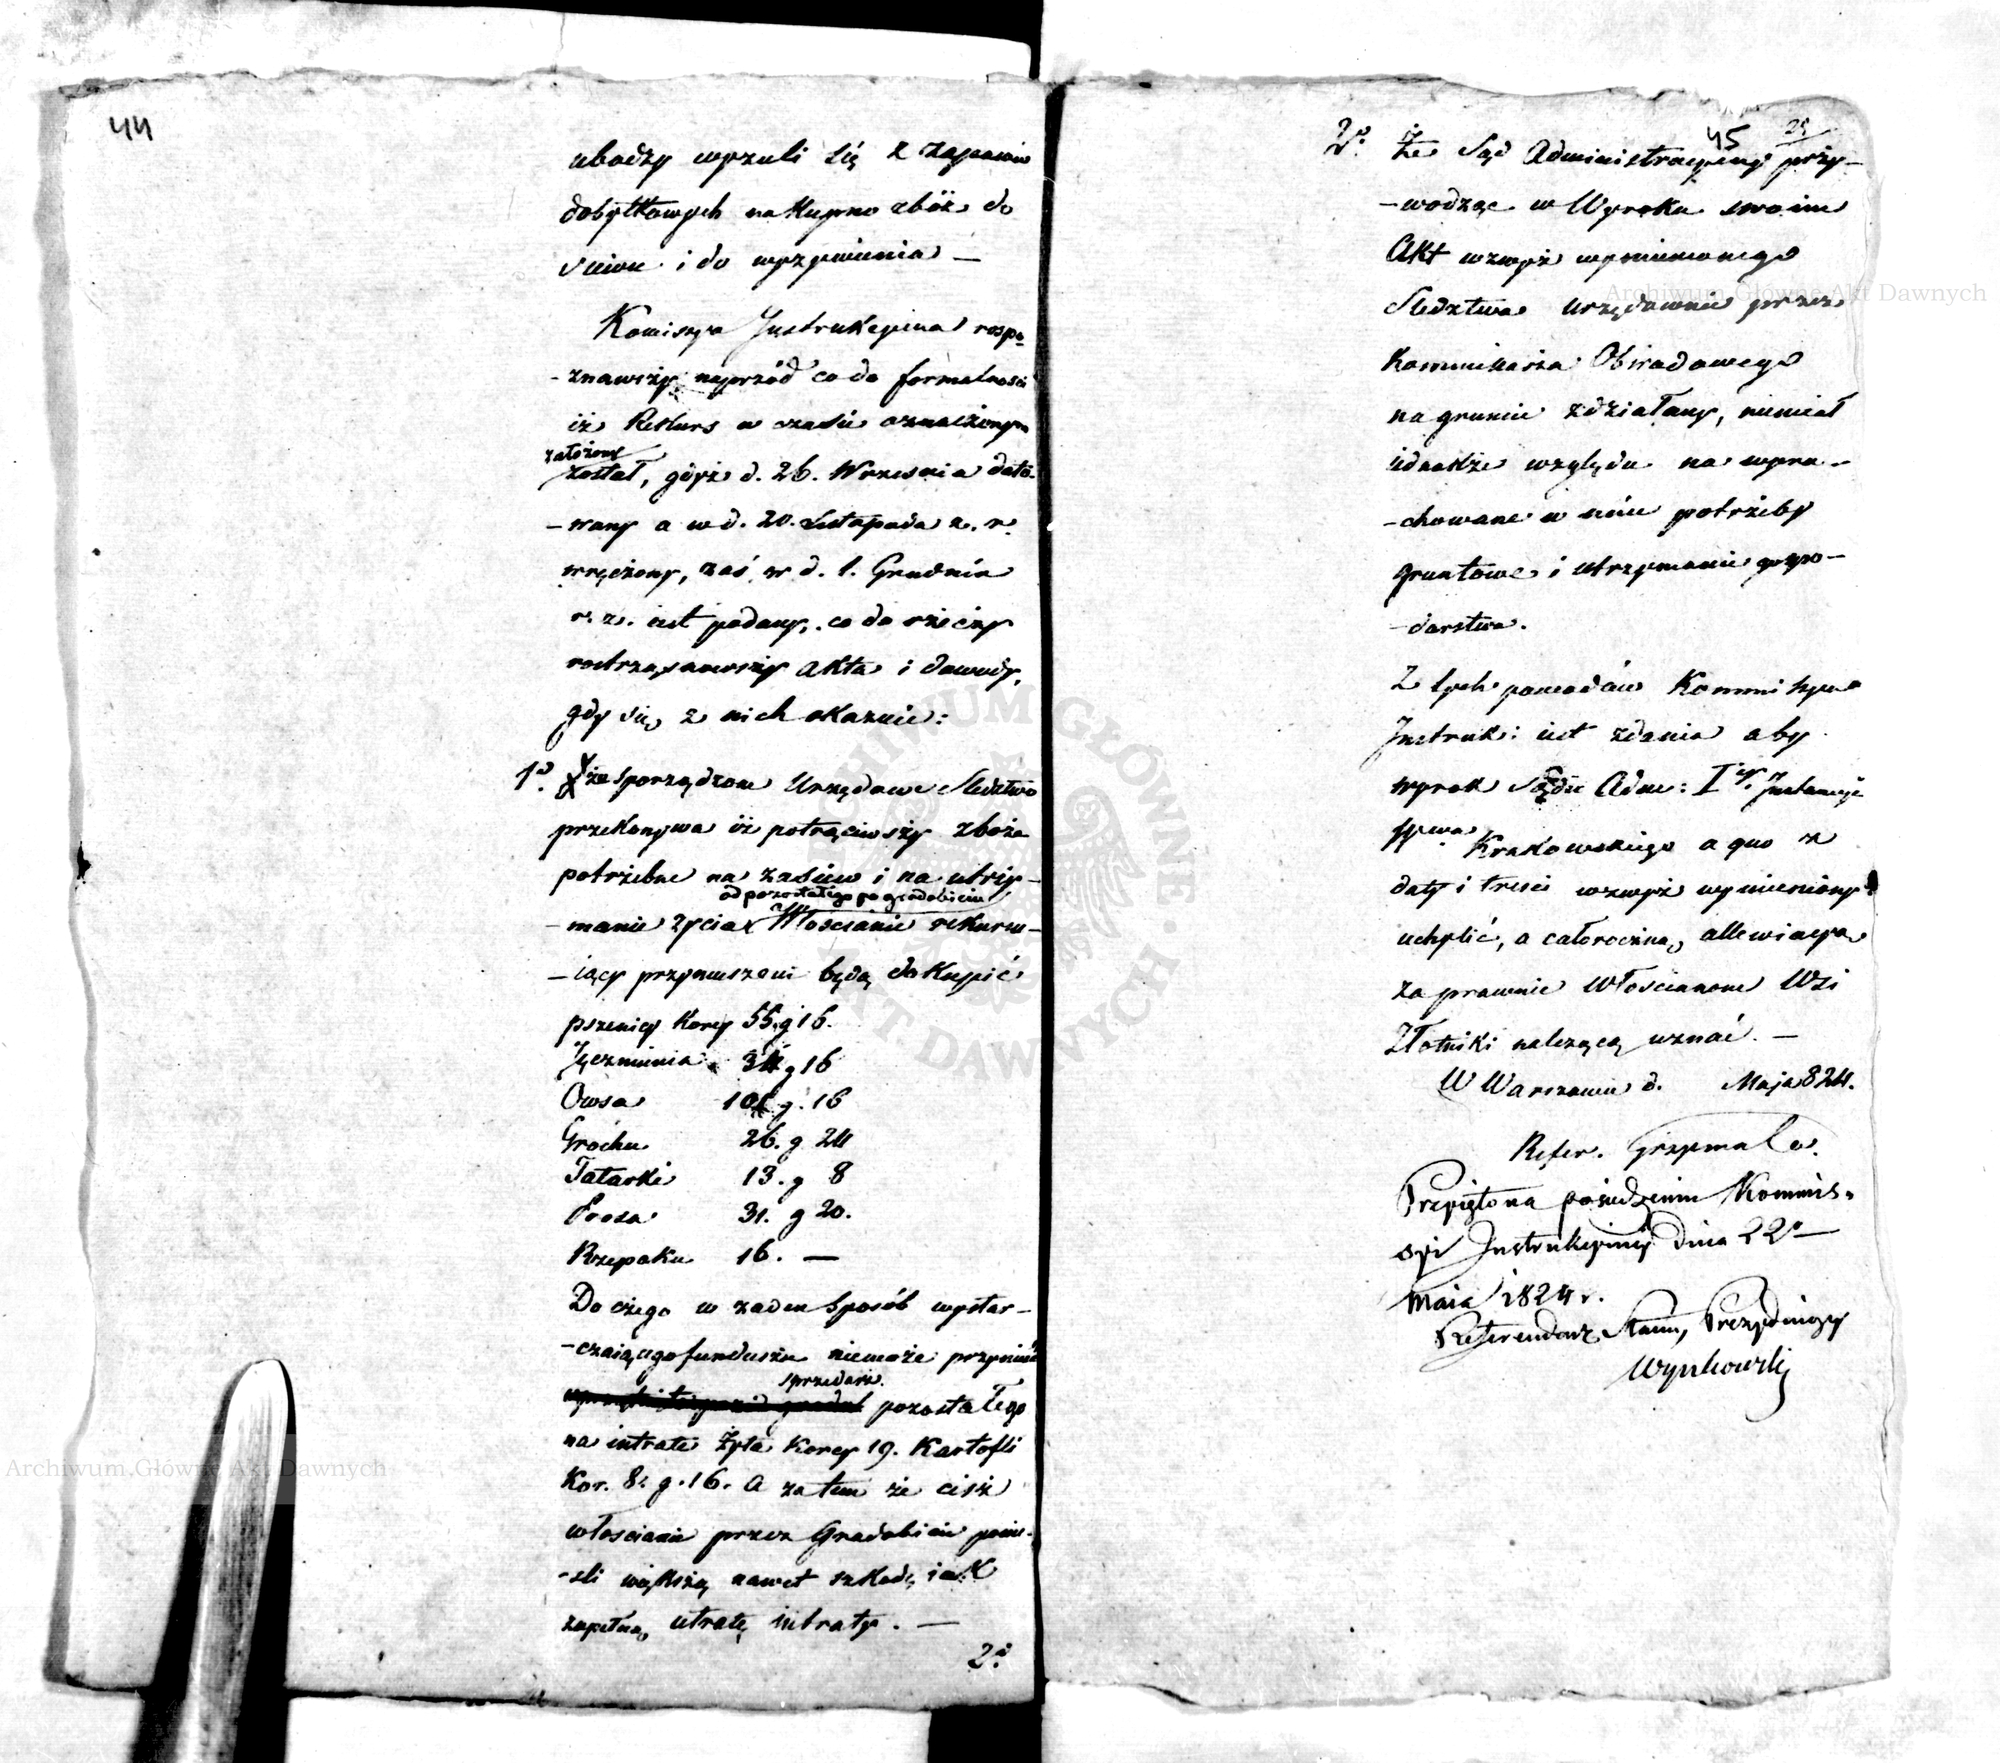 44
ubodzy wyzuli się z zapasów
dobytkowych na kupno zbóż do
siewu i do wyżywienia —
Komiszya Instrukcyina rospo-
-znawszy naprzód co do formalności
iż Rekurs w czasie oznaczonym
założony
został, gdyż d. 26. Września dato-
-wany a w d. 20. Listopada z. r.
wręczony, zaś w d. 1. Grudnia
r. z. iest podany, co do rzeczy
roztrząsnąwszy Akta i dowody,
gdy się z nich okazuie:
1o. że Sporządzone Urzędowe Sledztwo
przekonywa iż potrąciwszy zboże
potrzebne na zasiew i na utrzy-
od pozostałego po gradobiciu
-manie życia Włościanie rekuru-
-iący przymuszeni będą dokupić
pszenicy Korcy 55. g 16.
Jęczmienia 34 g 16
Owsa 101 g. 16
Grochu 26. g 24
Tatarki 13. g 8
Prosa 31. g 20.
Rzepaku 16. —
Do czego w żaden Sposób wystar-
-czaiącego funduszu niemoże przynieść
sprzedaż
pozostałego
na intratę Żyta Korcy 19. Kartofli
Kor. 8. g. 16. A zatem że ciż
włościanie przez Gradobicie ponie-
-śli większą nawet szkodę iak
zupełną utratę intraty. —
2o.
45
2o. Że Sąd Administracyiny przy-
-wodząc w Wyroku swoim
Akt wzwyż wymienionego
Sledztwa urzędownie przez
Kommissarza Obwodowego
na gruncie zdziałany, niemiał
iednakże względu na wyra-
-chowane w nim potrzeby
gruntowe i utrzymanie gospo-
-darstwa.
Z tych powodów Kommiszya
Instruk: iest zdania aby
wyrok Sądu Adm: Iey Instancyi
Wwa Krakowskiego a quo z
daty i treści wzwyż wymieniony
uchylić, a całoroczną allewiacyą
za prawnie Włościanom Wsi
Złotniki należącą uznać. —
W Warszawie d. Maja 824.
Refer. Grzymała.
Przyięto na posiedzeniu Kommis-
syi Instrukcyiney dnia 22o
Maia 1824 r.
Referendarz Stanu, Prezyduiący